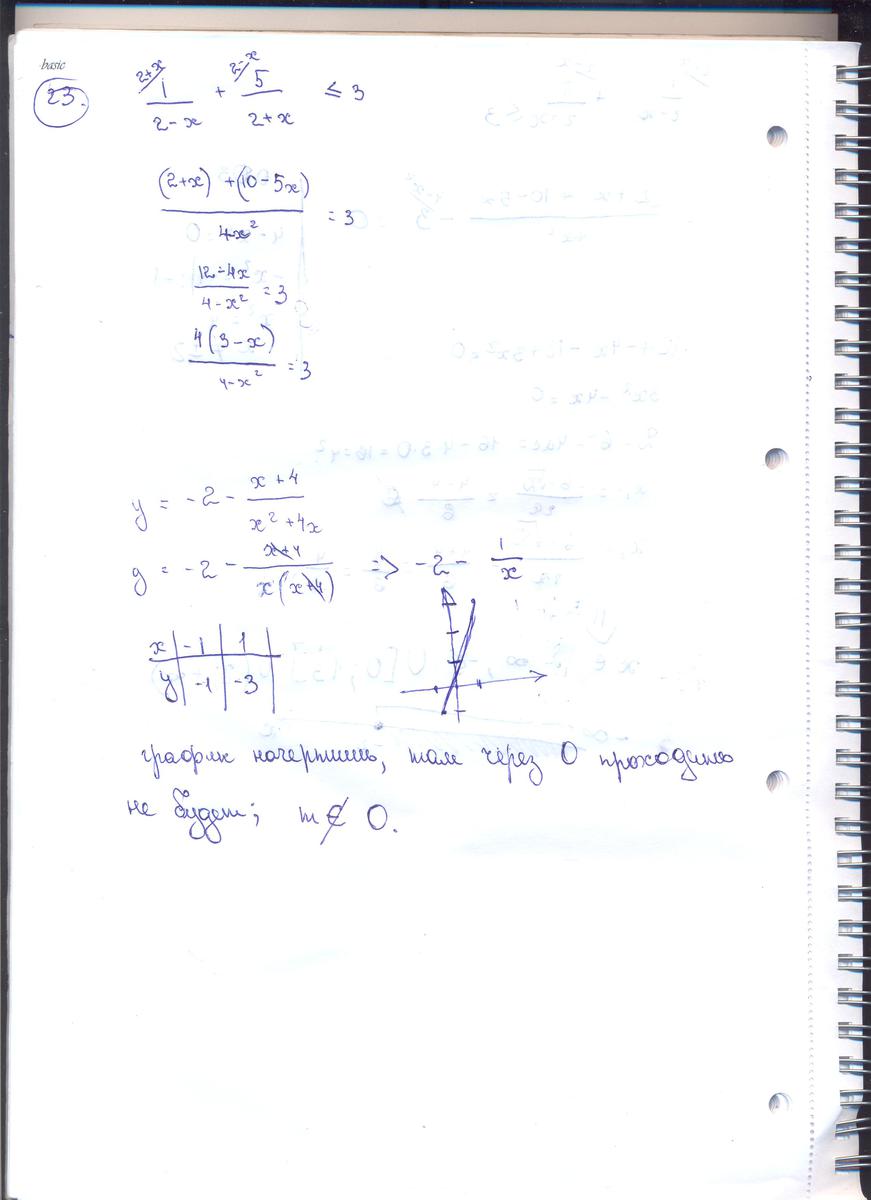 basic
23. 2+x/ 1/(2-x) + 2-x/ 5/(2+x) ≤ 3
((2+x) + (10-5x))/(4-x²) = 3
(12-4x)/(4-x²) = 3
(4(3-x))/(4-x²) = 3
y = -2 - (x+4)/(x²+4x)
y = -2 - (x+4)/(x(x+4)) => -2 - 1/x
x | -1 | 1
y | -1 | -3
график начертишь, там через 0 проходить
не будет; m ∉ 0.